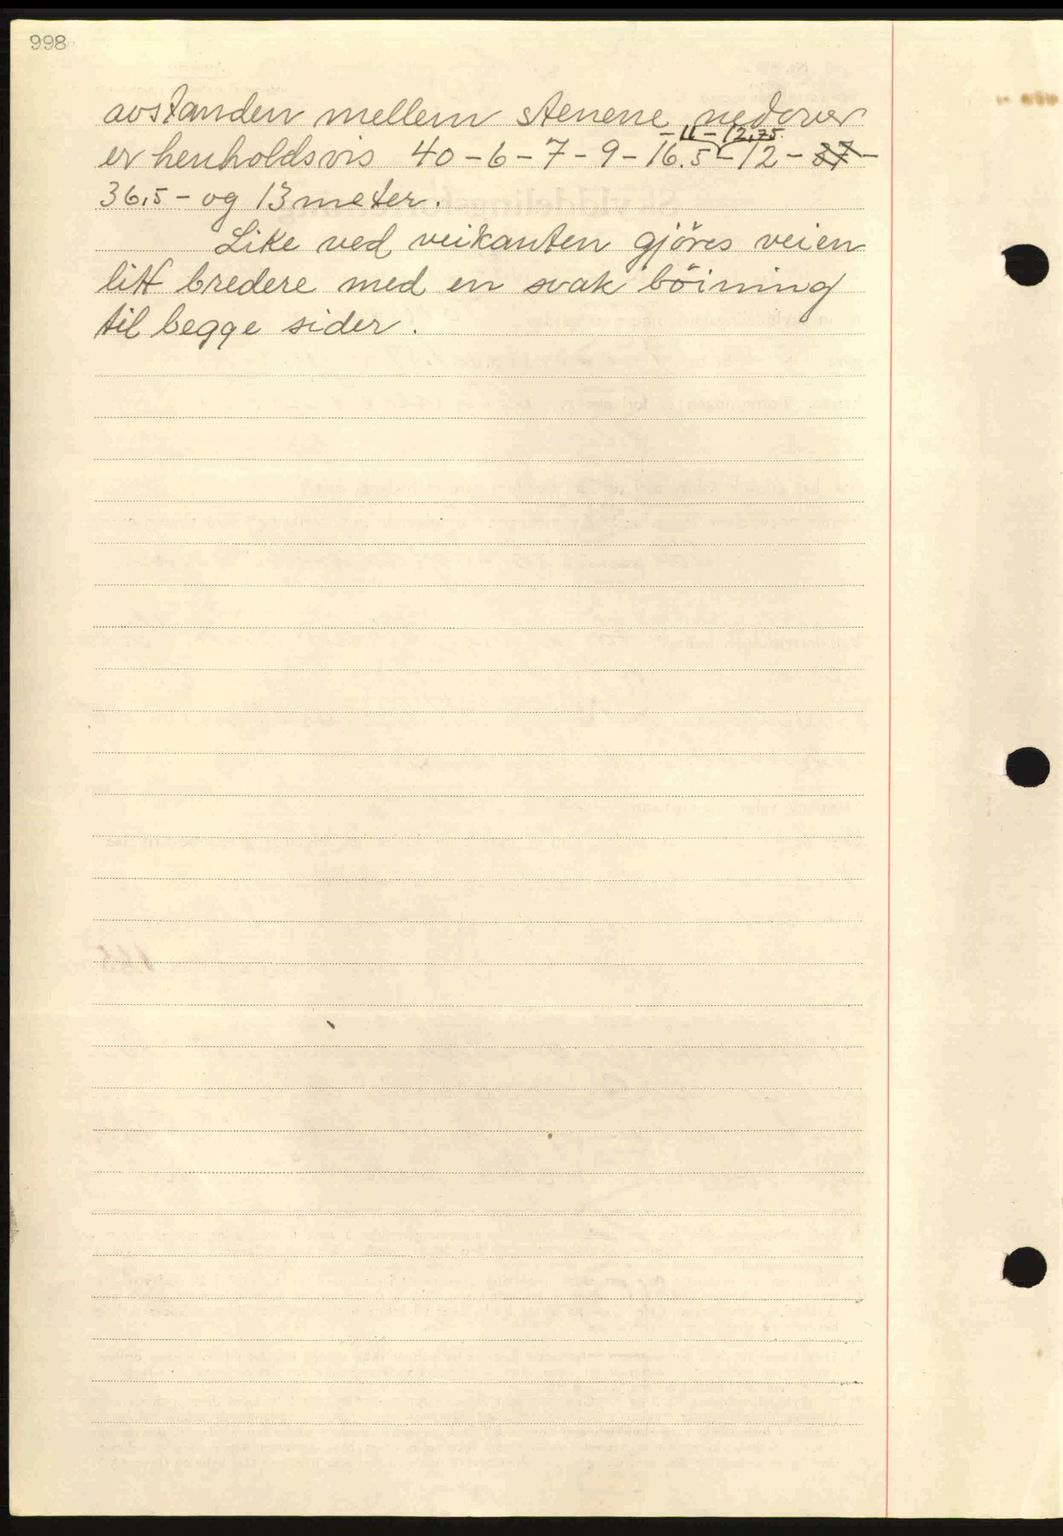 998
avstanden mellem stenene nedover
- 11 - 12,75
er henholdsvis 40 - 6 - 7 - 9 - 16.5 - 12 - 37 -
36,5 - og 13 meter.
Like ved veikanten gjöres veien
litt bredere med en svak böining
til begge sider.